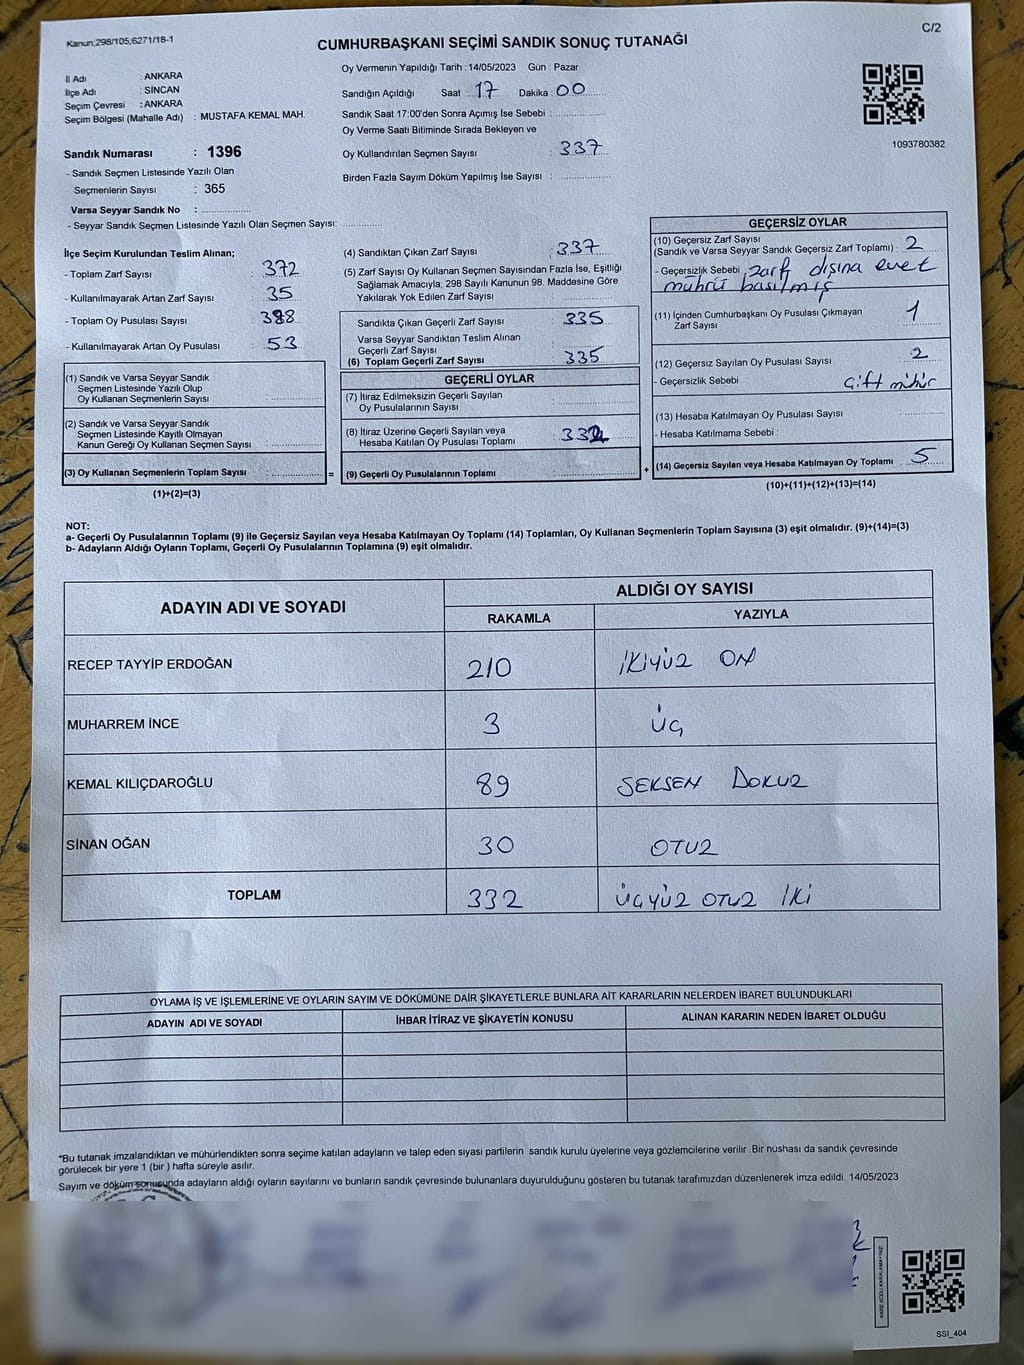 Kanun;298/105;6271/18-1
C/2
CUMHURBAŞKANI SEÇİMİ SANDIK SONUÇ TUTANAĞI
İl Adı : ANKARA
İlçe Adı : SİNCAN
Seçim Çevresi : ANKARA
Seçim Bölgesi (Mahalle Adı) : MUSTAFA KEMAL MAH.
Sandık Numarası : 1396
- Sandık Seçmen Listesinde Yazılı Olan
Seçmenlerin Sayısı : 365
Varsa Seyyar Sandık No :
- Seyyar Sandık Seçmen Listesinde Yazılı Olan Seçmen Sayısı:
Oy Vermenin Yapıldığı Tarih : 14/05/2023 Gün : Pazar
Sandığın Açıldığı Saat : 17 Dakika : 00
Sandık Saat 17:00'den Sonra Açımış İse Sebebi :
Oy Verme Saati Bitiminde Sırada Bekleyen ve
Oy Kullandırılan Seçmen Sayısı : 337
Birden Fazla Sayım Döküm Yapılmış İse Sayısı :
1093780382
İlçe Seçim Kurulundan Teslim Alınan;
- Toplam Zarf Sayısı : 372
- Kullanılmayarak Artan Zarf Sayısı : 35
- Toplam Oy Pusulası Sayısı : 388
- Kullanılmayarak Artan Oy Pusulası : 53
(1) Sandık ve Varsa Seyyar Sandık
Seçmen Listesinde Yazılı Olup
Oy Kullanan Seçmenlerin Sayısı :
(2) Sandık ve Varsa Seyyar Sandık
Seçmen Listesinde Kayıtlı Olmayan
Kanun Gereği Oy Kullanan Seçmen Sayısı :
(3) Oy Kullanan Seçmenlerin Toplam Sayısı : =
(1)+(2)=(3)
(4) Sandıktan Çıkan Zarf Sayısı : 337
(5) Zarf Sayısı Oy Kullanan Seçmen Sayısından Fazla İse, Eşitliği
Sağlamak Amacıyla; 298 Sayılı Kanunun 98. Maddesine Göre
Yakılarak Yok Edilen Zarf Sayısı :
Sandıkta Çıkan Geçerli Zarf Sayısı : 335
Varsa Seyyar Sandıktan Teslim Alınan
Geçerli Zarf Sayısı :
(6) Toplam Geçerli Zarf Sayısı : 335
GEÇERLİ OYLAR
(7) İtiraz Edilmeksizin Geçerli Sayılan
Oy Pusulalarının Sayısı :
(8) İtiraz Üzerine Geçerli Sayılan veya
Hesaba Katılan Oy Pusulası Toplamı : 332
(9) Geçerli Oy Pusulalarının Toplamı : +
GEÇERSİZ OYLAR
(10) Geçersiz Zarf Sayısı
(Sandık ve Varsa Seyyar Sandık Geçersiz Zarf Toplamı) : 2
- Geçersizlik Sebebi : zarf dışına evet
mührü basılmış
(11) İçinden Cumhurbaşkanı Oy Pusulası Çıkmayan
Zarf Sayısı : 1
(12) Geçersiz Sayılan Oy Pusulası Sayısı : 2
- Geçersizlik Sebebi : Çift mühür
(13) Hesaba Katılmayan Oy Pusulası Sayısı :
- Hesaba Katılmama Sebebi :
(14) Geçersiz Sayılan veya Hesaba Katılmayan Oy Toplamı : 5
(10)+(11)+(12)+(13)=(14)
NOT:
a- Geçerli Oy Pusulalarının Toplamı (9) ile Geçersiz Sayılan veya Hesaba Katılmayan Oy Toplamı (14) Toplamları, Oy Kullanan Seçmenlerin Toplam Sayısına (3) eşit olmalıdır. (9)+(14)=(3)
b- Adayların Aldığı Oyların Toplamı, Geçerli Oy Pusulalarının Toplamına (9) eşit olmalıdır.
ADAYIN ADI VE SOYADI ALDIĞI OY SAYISI
RAKAMLA YAZIYLA
RECEP TAYYİP ERDOĞAN 210 İKİYÜZ ON
MUHARREM İNCE 3 ÜÇ
KEMAL KILIÇDAROĞLU 89 SEKSEN DOKUZ
SİNAN OĞAN 30 OTUZ
TOPLAM 332 ÜÇYÜZ OTUZ İKİ
OYLAMA İŞ VE İŞLEMLERİNE VE OYLARIN SAYIM VE DÖKÜMÜNE DAİR ŞİKAYETLERLE BUNLARA AİT KARARLARIN NELERDEN İBARET BULUNDUKLARI
ADAYIN ADI VE SOYADI İHBAR İTİRAZ VE ŞİKAYETİN KONUSU ALINAN KARARIN NEDEN İBARET OLDUĞU
*Bu tutanak imzalandıktan ve mühürlendikten sonra seçime katılan adayların ve talep eden siyasi partilerin sandık kurulu üyelerine veya gözlemcilerine verilir .Bir nüshası da sandık çevresinde
görülecek bir yere 1 (bir ) hafta süreyle asılır.
Sayım ve döküm sonusunda adayların aldığı oyların sayılarını ve bunların sandık çevresinde bulunanlara duyurulduğunu gösteren bu tutanak tarafımızdan düzenlenerek imza edildi. 14/05/2023
SSİ_404